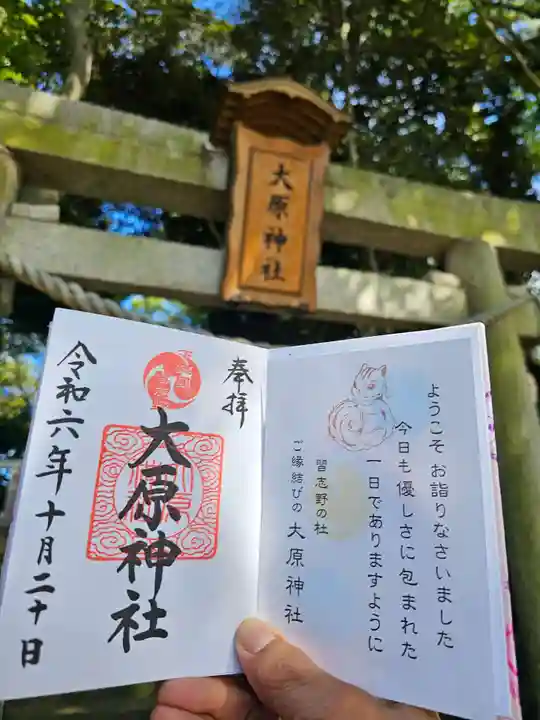 大原神社
奉拝
大原神社
令和六年十月二十日
ようこそ お詣りなさいました
今日も優しさに包まれた
一日でありますように
習志野の杜
ご縁結びの 大原神社